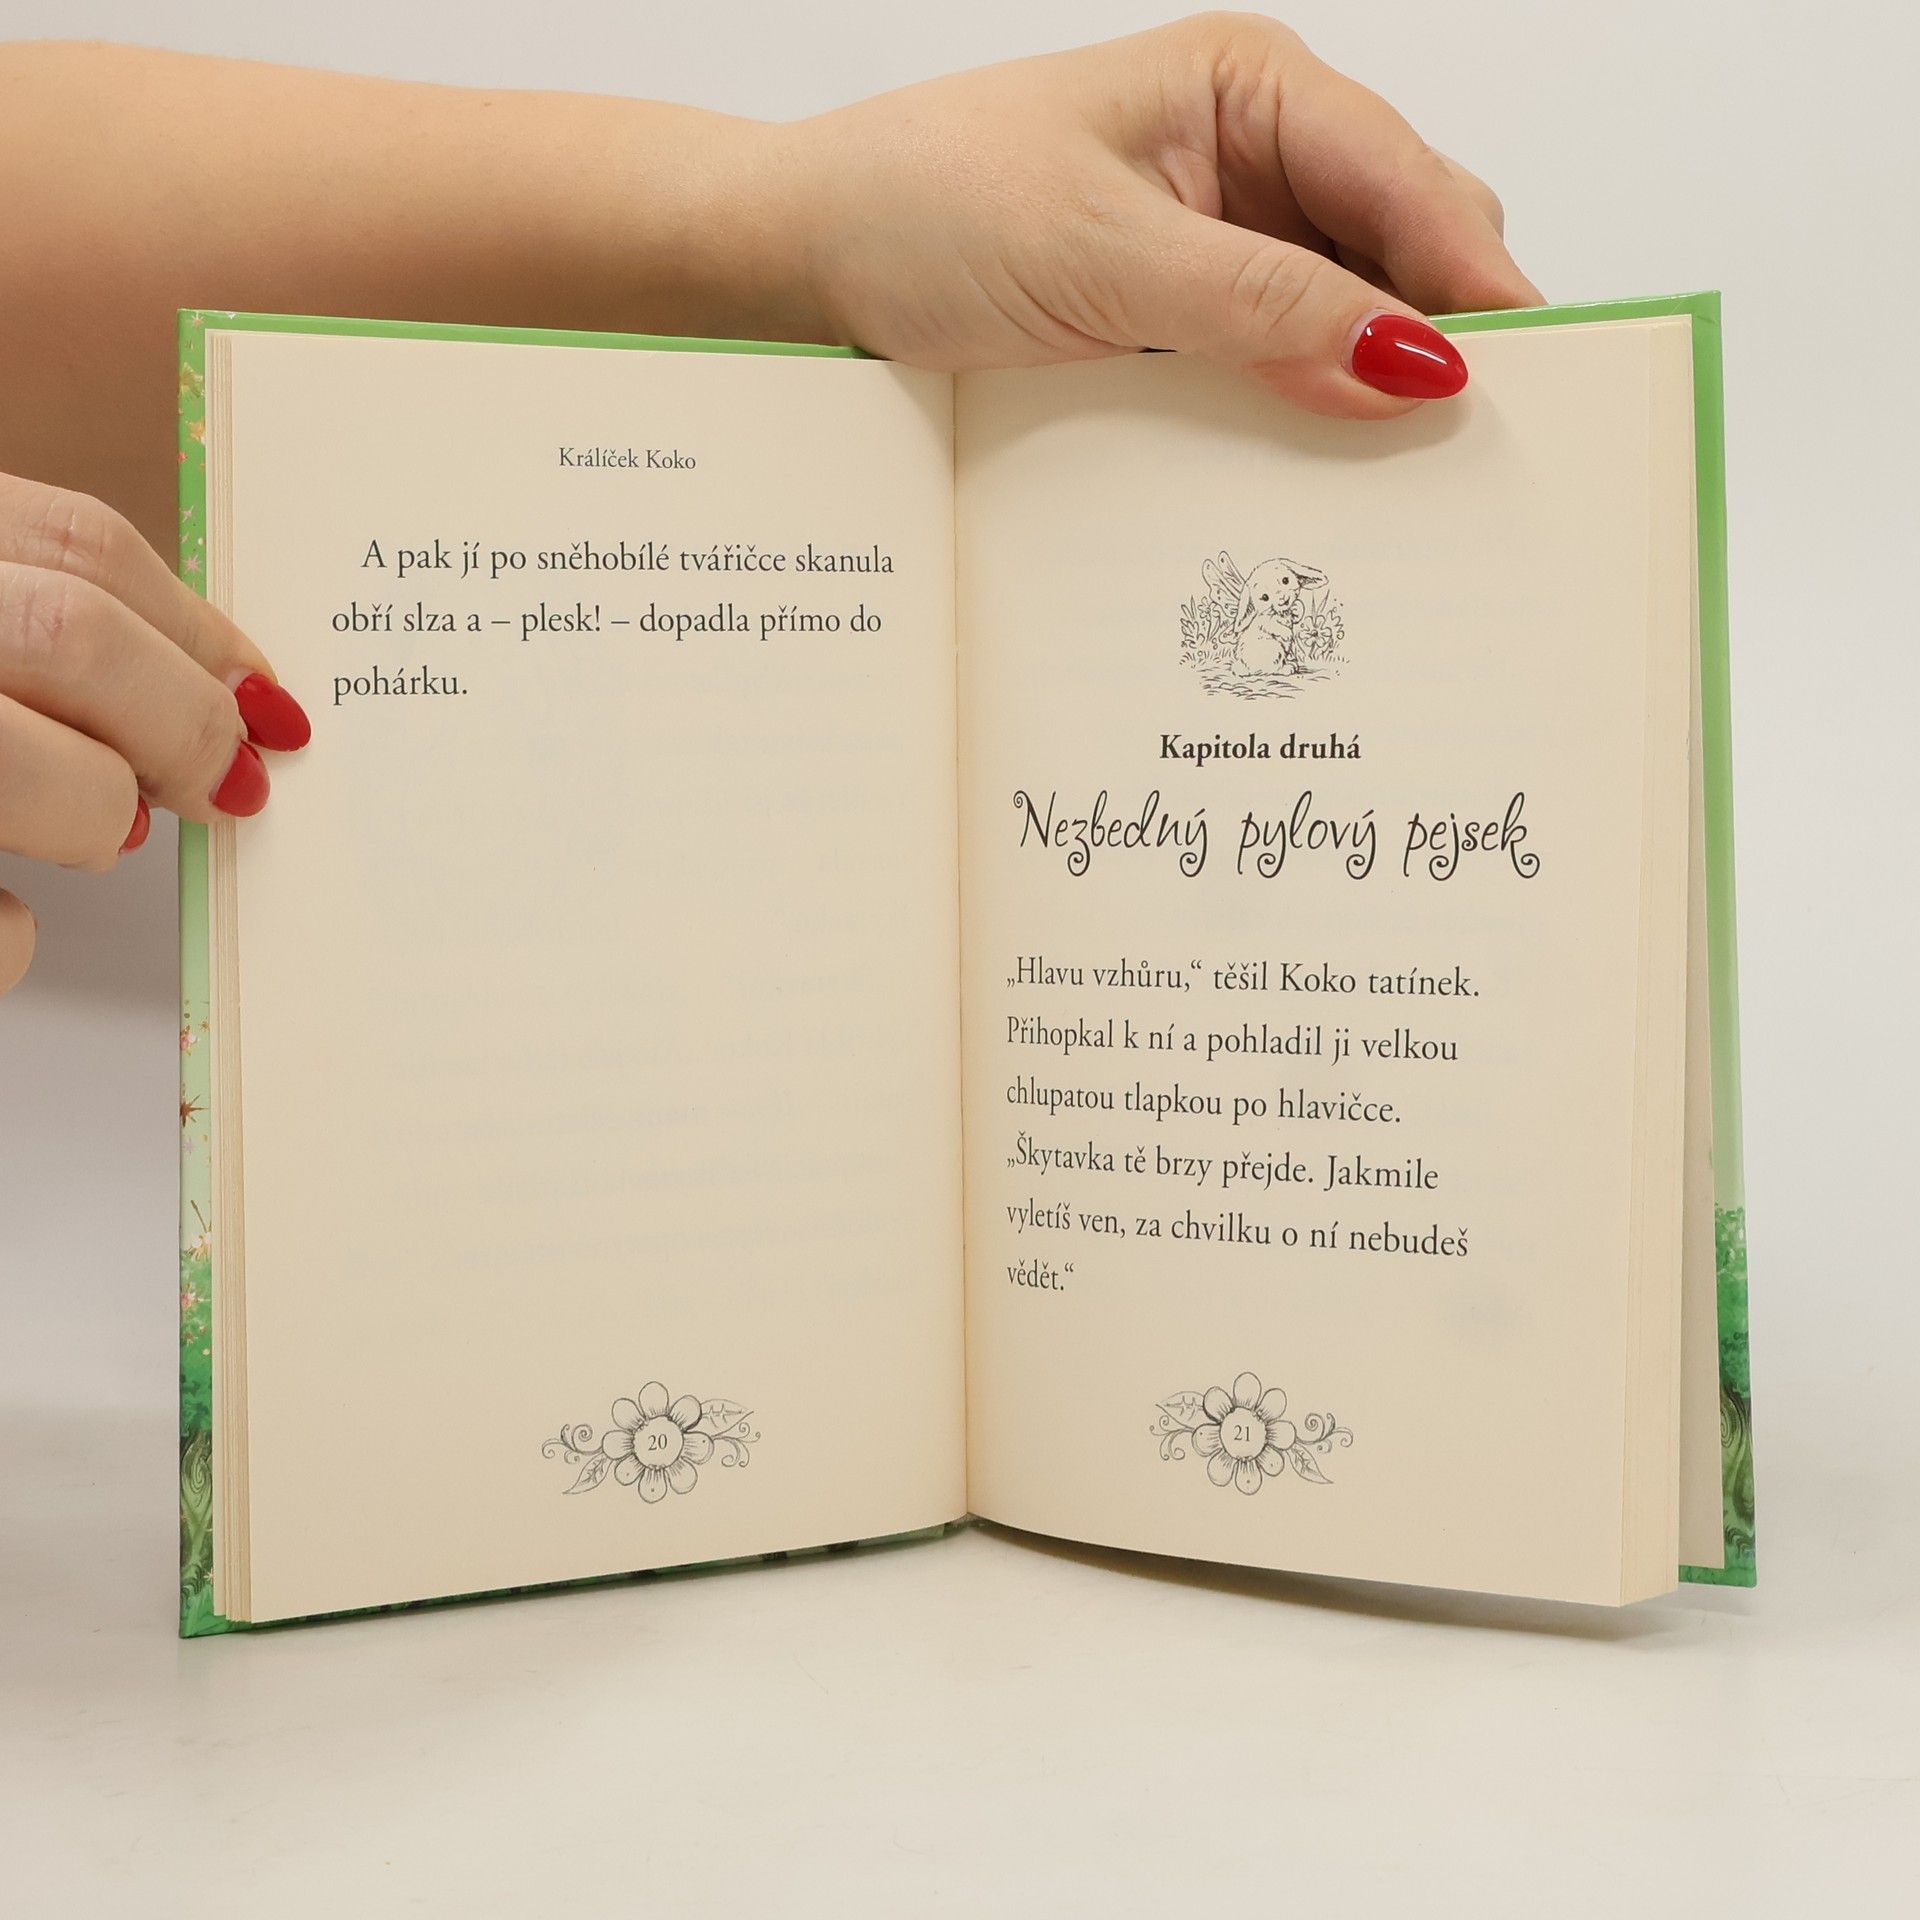 Králíček Koko
A pak jí po sněhobílé tvářičce skanula
obří slza a – plesk! – dopadla přímo do
pohárku.
20
Kapitola druhá
Nezbedný pylový pejsek
„Hlavu vzhůru,“ těšil Koko tatínek.
Přihopkal k ní a pohladil ji velkou
chlupatou tlapkou po hlavičce.
„Škytavka tě brzy přejde. Jakmile
vyletíš ven, za chvilku o ní nebudeš
vědět.“
21